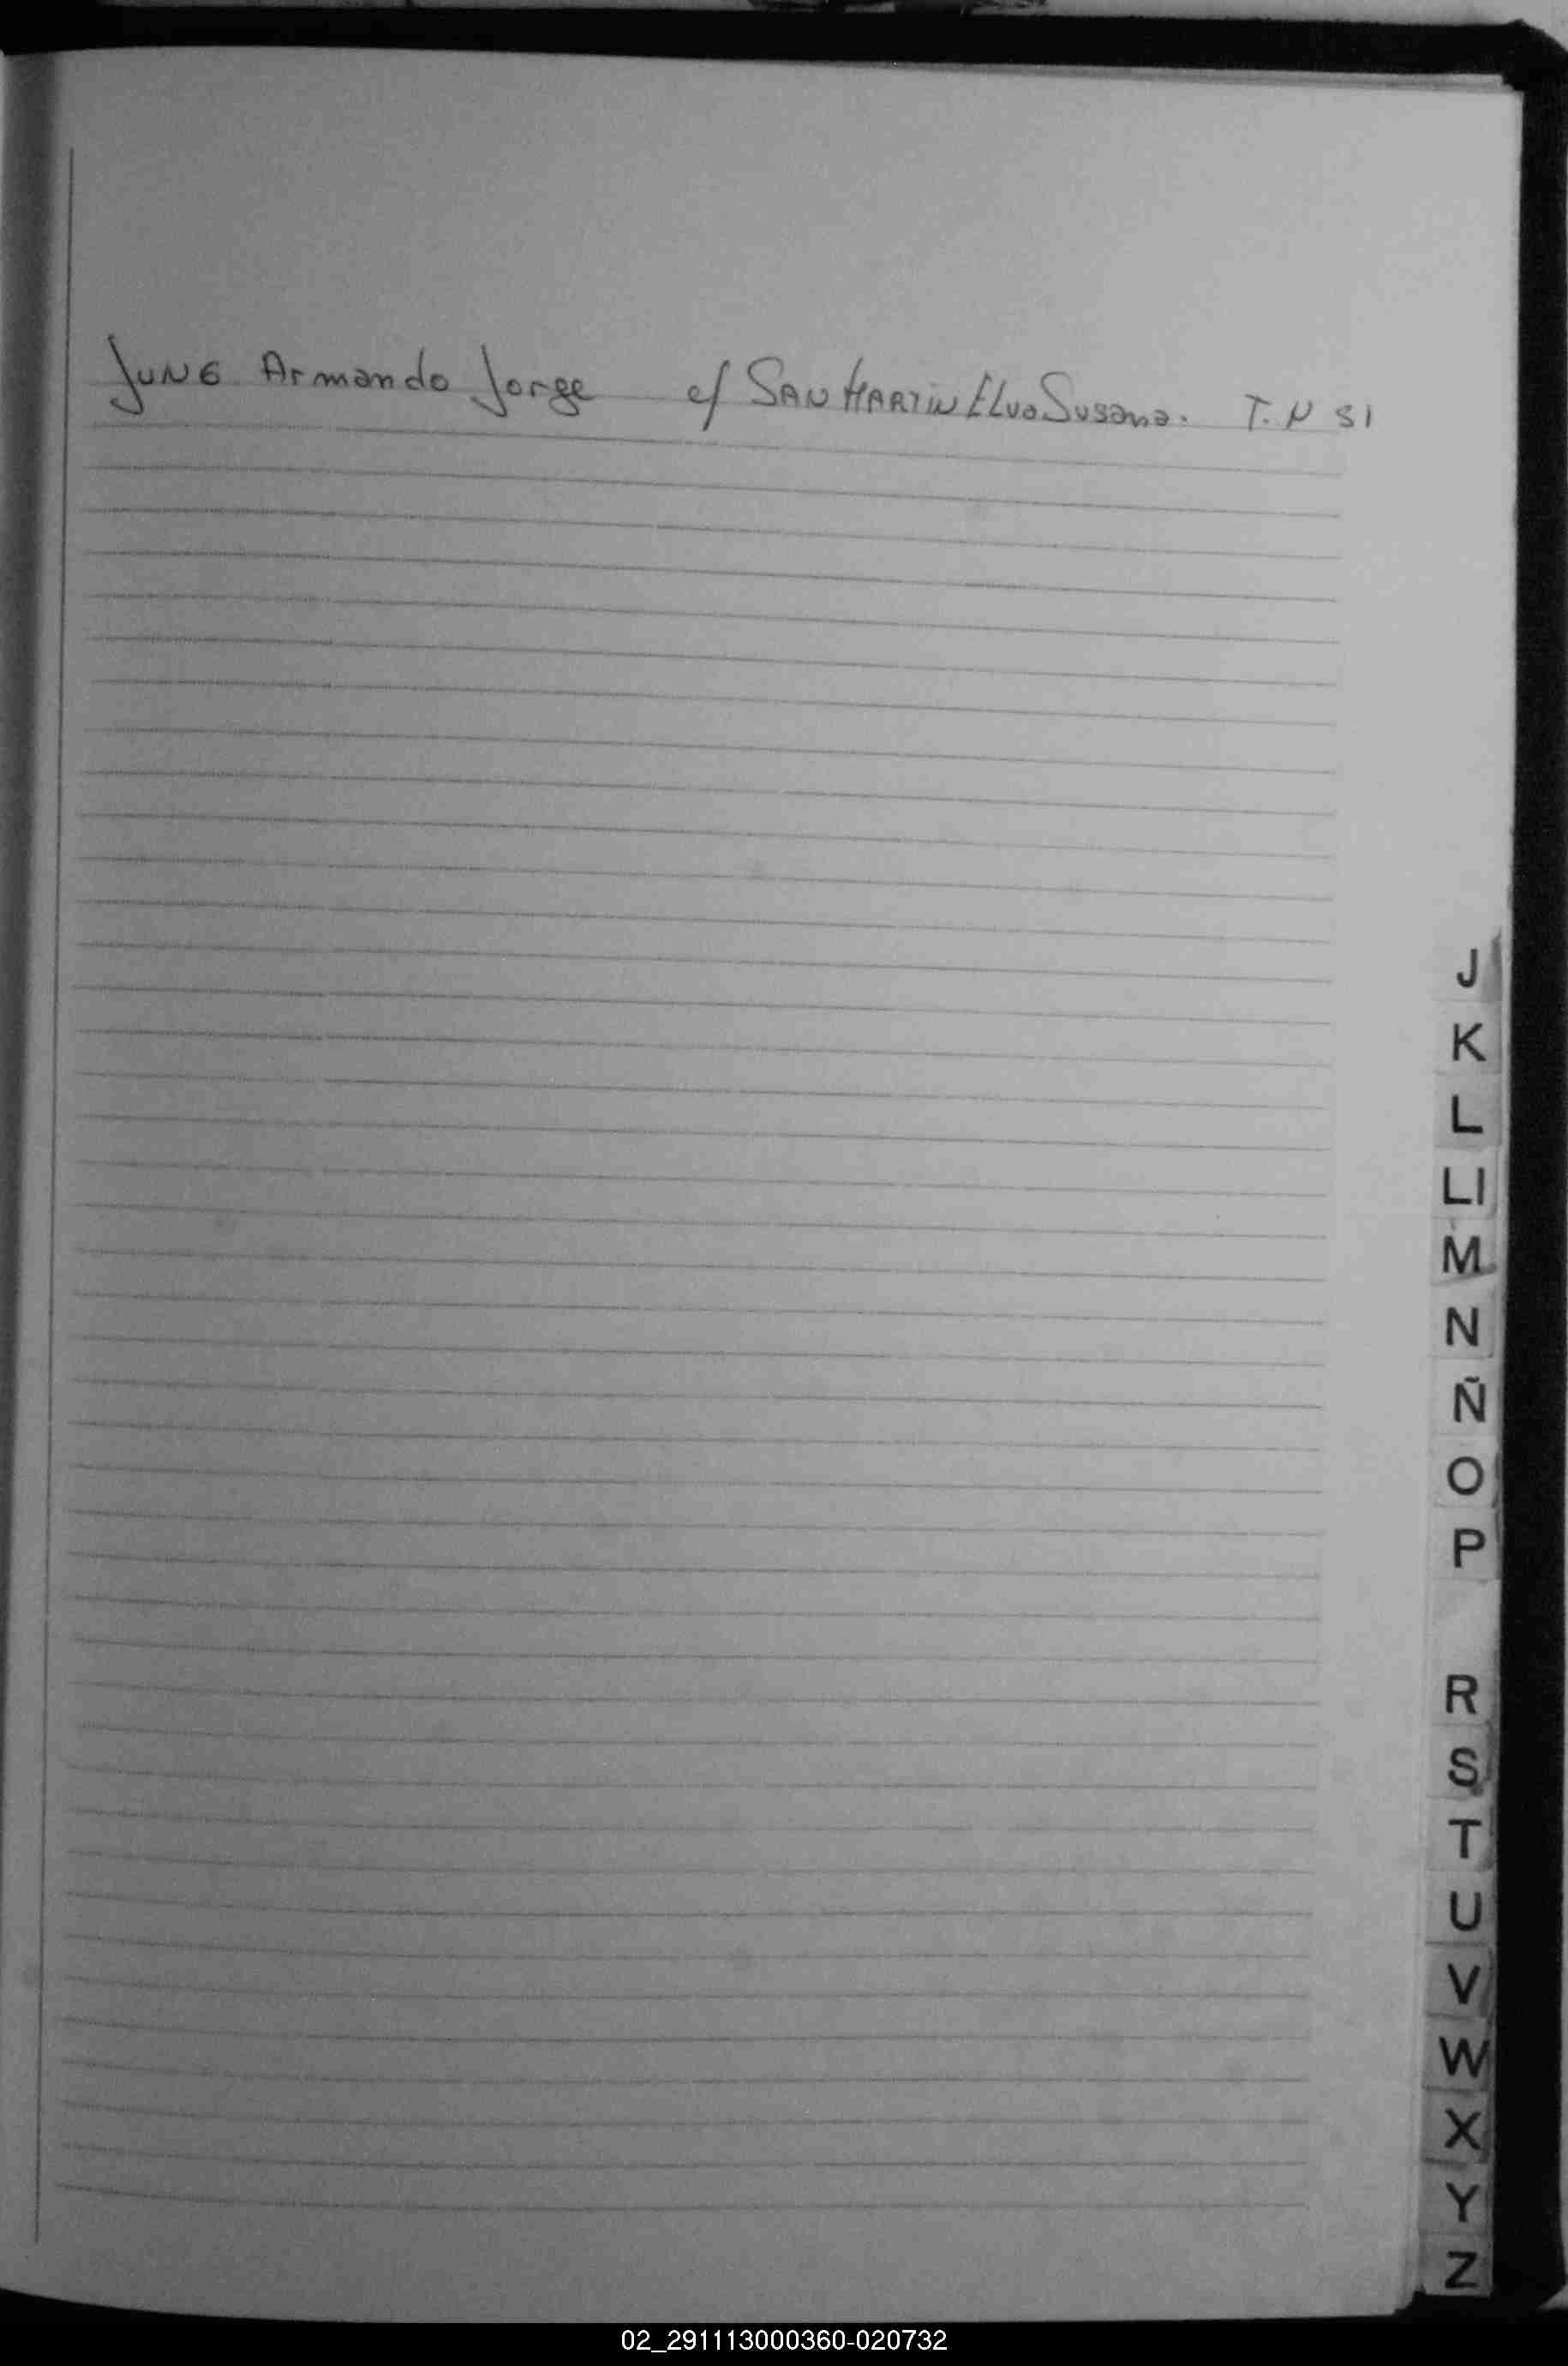 June Armando Jorge c/ San Martin Elva Susana. T. N 81
J
K
L
Ll
M
N
Ñ
O
P
R
S
T
U
V
W
X
Y
Z
02_291113000360-020732